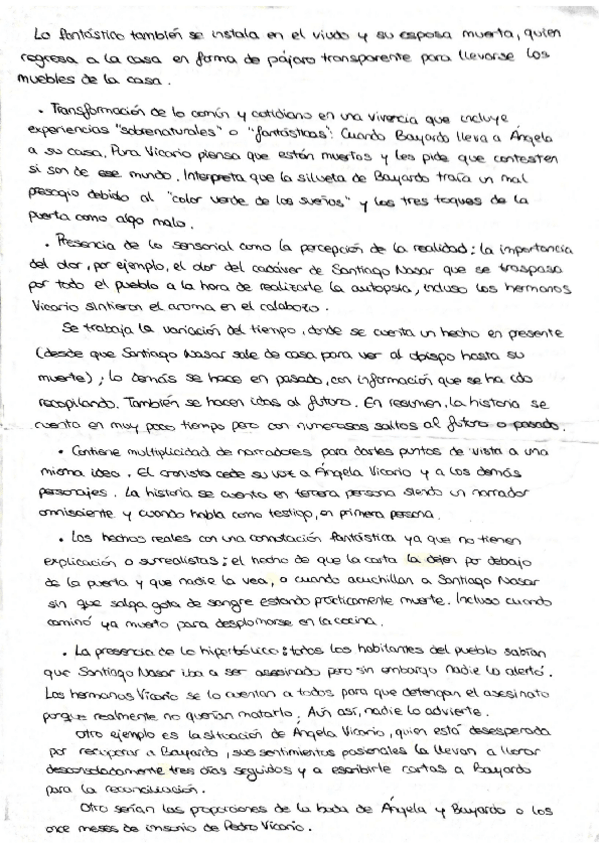 Lo fantástico también se instala en el viudo y su esposa muerta, quien
regresa a la casa en forma de pájaro transparente para llevarse los
muebles de la casa.
• Transformación de lo común y cotidiano en una vivencia que incluye
experiencias "sobrenaturales" o "fantásticas": Cuando Bayardo lleva a Ángela
a su casa, Pura Vicario piensa que están muertos y les pide que contesten
si son de ese mundo. Interpreta que la silueta de Bayardo traía un mal
presagio debido al "color verde de los sueños" y los tres toques de la
puerta como algo malo.
• Presencia de lo sensorial como la percepción de la realidad: la importancia
del olor, por ejemplo, el olor del cadáver de Santiago Nasar que se traspasa
por todo el pueblo a la hora de realizarle la autopsia, incluso los hermanos
Vicario sintieron el aroma en el calabozo.
Se trabaja la variación del tiempo, donde se cuenta un hecho en presente
(desde que Santiago Nasar sale de casa para ver al obispo hasta su
muerte); lo demás se hace en pasado, con información que se ha ido
recopilando. También se hacen idas al futuro. En resumen, la historia se
cuenta en muy poco tiempo pero con numerosos saltos al futuro o pasado.
• Contiene multiplicidad de narradores para darles puntos de vista a una
misma idea. El cronista cede su voz a Ángela Vicario y a los demás
personajes. La historia se cuenta en tercera persona siendo un narrador
omnisciente y cuando habla como testigo, en primera persona.
• Los hechos reales con una connotación fantástica ya que no tienen
explicación o surrealistas; el hecho de que la carta la dejen por debajo
de la puerta y que nadie la vea, o cuando acuchillan a Santiago Nasar
sin que salga gota de sangre estando prácticamente muerte. Incluso cuando
caminó ya muerto para desplomarse en la cocina.
• La presencia de lo hiperbólico: todos los habitantes del pueblo sabían
que Santiago Nasar iba a ser asesinado pero sin embargo nadie lo alertó.
Los hermanos Vicario se lo cuentan a todos para que detengan el asesinato
porque realmente no querían matarlo. Aún así, nadie lo advierte.
Otro ejemplo es la situación de Ángela Vicario, quien está desesperada
por recuperar a Bayardo, sus sentimientos pasionales la llevan a llorar
desconsoladamente tres días seguidos y a escribirle cartas a Bayardo
para la reconciliación.
Otro serían las proporciones de la boda de Ángela y Bayardo o los
once meses de insomnio de Pedro Vicario.